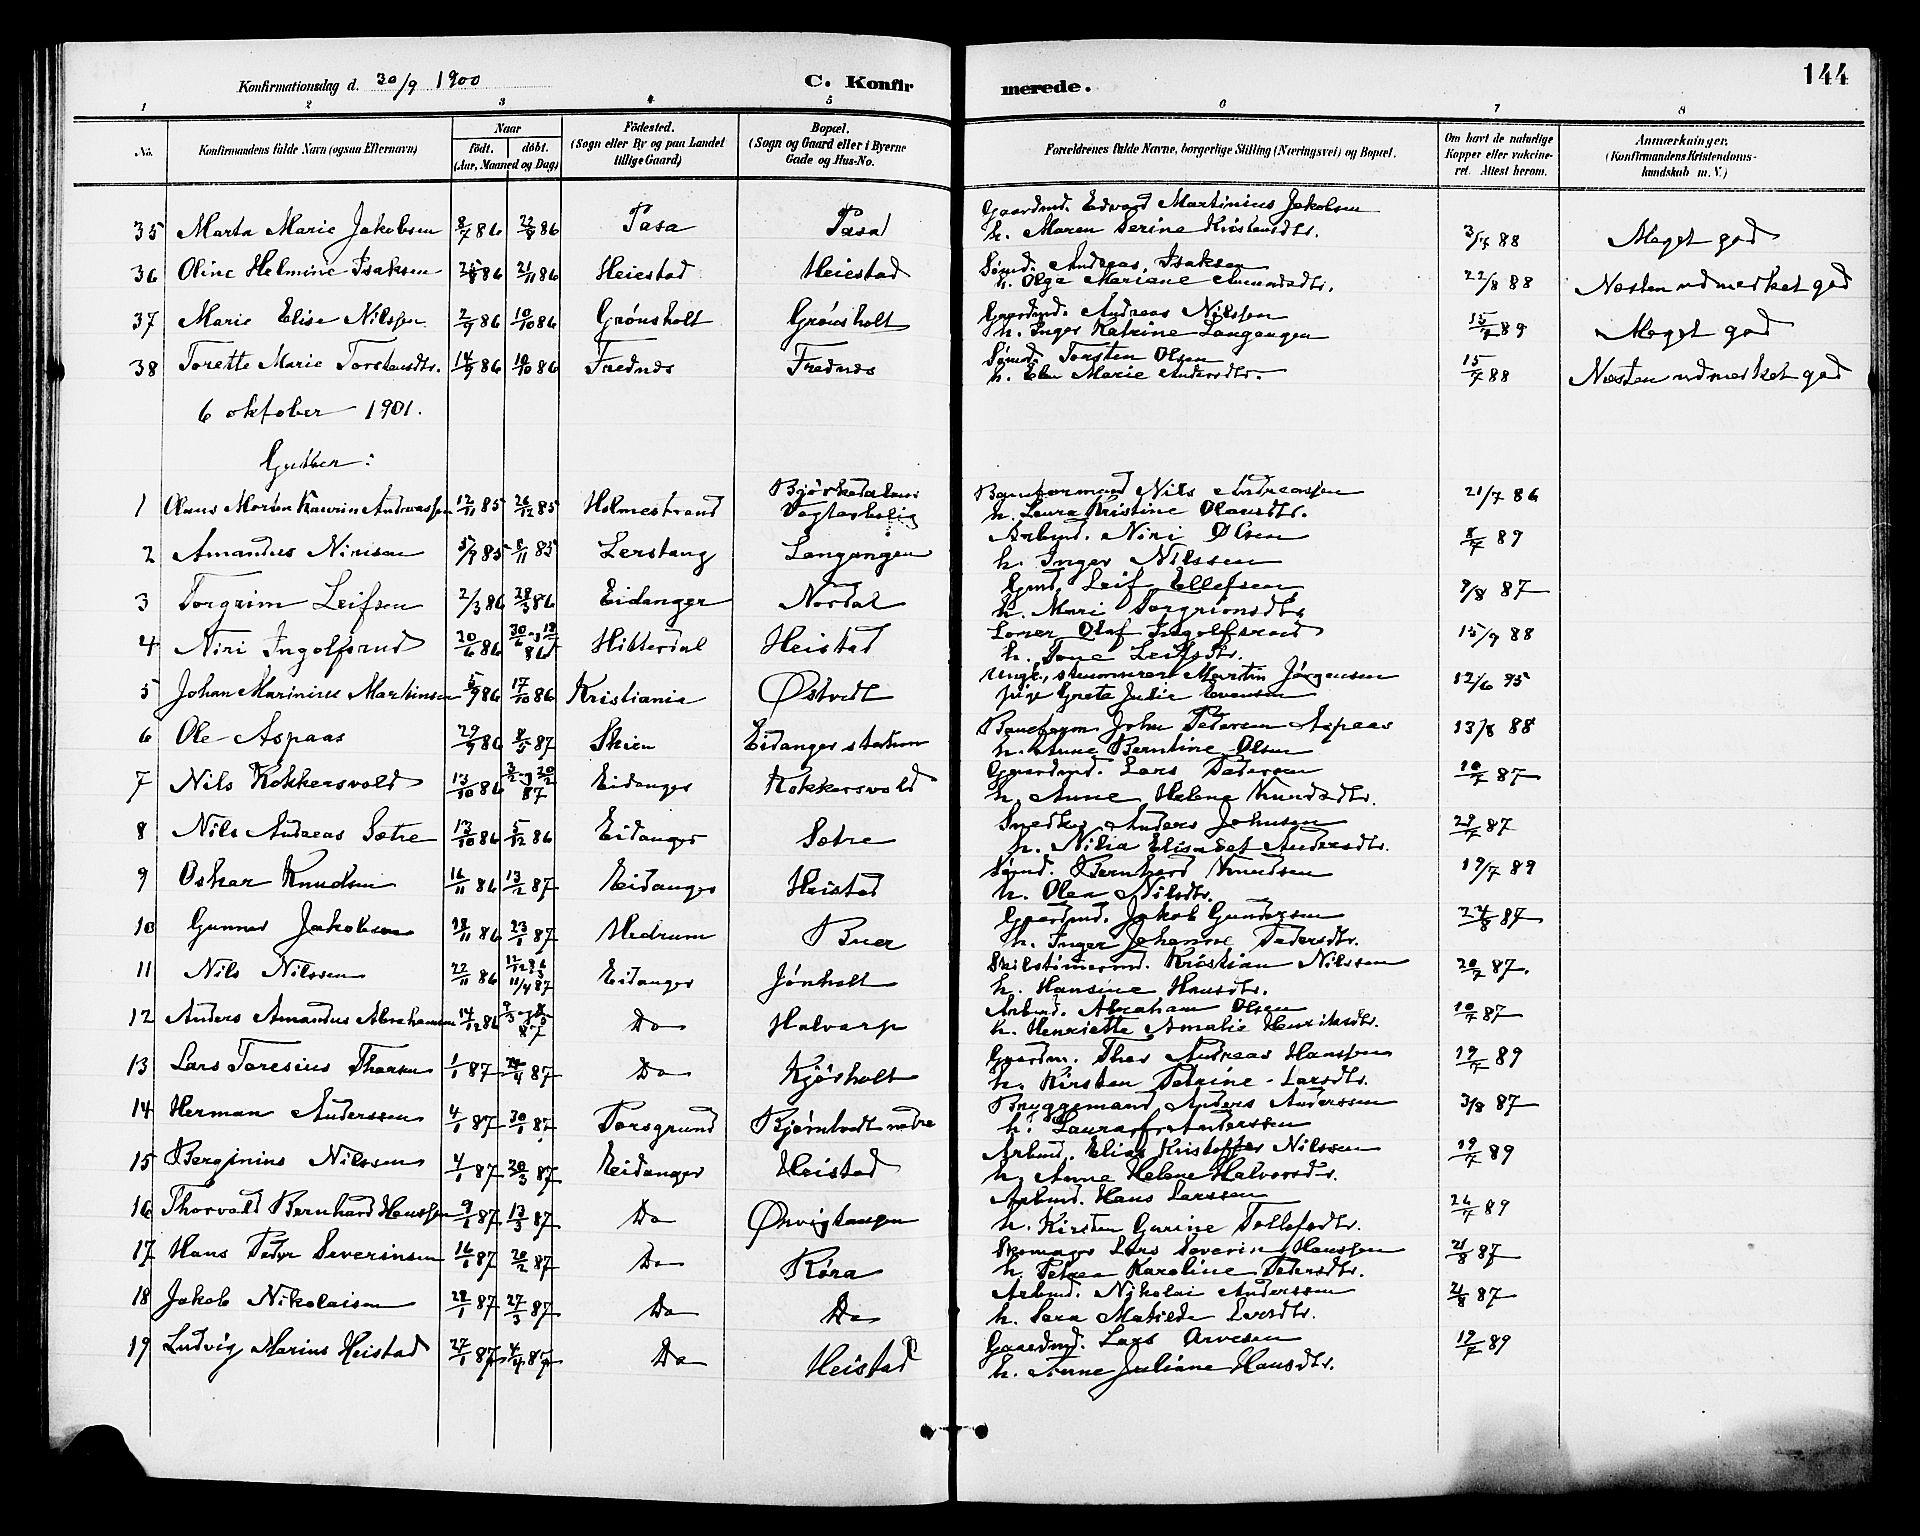 144
Konfirmationsdag d. 30/9 1900 C. Konfirmerede.
1 2 3 4 5 6 7 8
No. Konfirmandens fulde Navn (ogsaa Efternavn) Naar Födt. döbt. (Aar, Maaned og Dag) Födested. (Sogn eller By og paa Landet tillige Gaard) Bopæl. (Sogn og Gaard eller i Byerne Gade og Hus-No. Forældrenes fulde Navne, borgerlige Stilling (Næringsvei) og Bopæl. Om havt de naturlige Kopper eller vakcineret. Attest herom. Anmærkninger. (Konfirmandens Kristendomskundskab m. V.)
35 Marta Marie Jakobsen 8/7 86 22/8 86 Pasa Pasa Gaardmd. Edvard Martinius Jakobsen
h. Maren Serine Kristensdtr. 3/7 88 Meget god
36 Oline Helmine Isaksen 86 21/11 86 Heiestad Heiestad Sømd. Andreas Isaksen
h. Olga Mariane Amundsdtr. 22/8 88 Næsten udmerket god
37 Marie Elise Nilssen 2/9 86 10/10 86 Grønsholt Grønsholt Gaardmd. Andreas Nilssen
h. Inger Katrine Langangen 15/7 89 Meget god
38 Torette Marie Torstensdtr. 14/9 86 10/10 86 Frednes Frednes Sømd. Torsten Olsen
h. Elen Marie Andersdtr. 15/7 88 Næsten udmerket god
6 oktober 1901.
Gutter:
1 Olaus Morten Kaurin Andreassen 12/11 85 26/12 85 Holmestrand Bjørkedalens Vogterbolig Baneformand Nils Andreassen
h. Laura Kristine Olausdtr. 21/7 86
2 Amandus Nirisen 5/9 85 8/11 85 Lerstang Langangen Arbmd. Niri Olsen
h. Inger Nilssen 8/7 89
3 Torgrim Leifsen 2/3 86 28/3 86 Eidanger Nordal Gmd. Leif Ellefsen
h. Mari Torgrimsdtr. 87
4 Niri Ingolfsrud 20/6 86 86 Hitterdal Heistad Olaf Ingolfsrud
h. Tone Leifsdtr. 15/9 88
5 Johan Marinius Martinsen 86 17/10 86 Kristiania Østvedt Ungk., Martin Jørgensen
pige Grete Julie 12/6 95
6 Ole Aspaas 29/9 86 8/5 87 Skien Eidanger station John Pedersen Aspaas
h. Anne Berntine Olsen 13/8 88
7 Nils Kokkersvold 13/10 86 3/2 og 20/2 87 Eidanger Kokkersvold Gaardmd. Lars Pedersen
h. Anne Helene Knudsdtr. 10/7 87
8 Nils Andreas Sætre 13/10 86 5/12 86 Eidanger Sætre Snedker Anders Johnsen
h. Nilia Elisabet Andersdtr. 29/7 87
9 Oskar Knudsen 16/11 86 13/2 87 Eidanger Heistad Sømd. Bernhard Knudsen
h. Olea Nilsdtr. 19/7 89
10 Gunnar Jakobsen 18/11 86 23/1 87 Hedrum Buer Gaardmd. Jakob Gundersen
h. Inger Johanne Pedersdtr. 24/8 87
11 Nils Nilssen 22/11 86 12/12 86 11/4 87 Eidanger Jønholt Skibstømermd. Kristian Nilssen
h. Hansine Hansdtr. 20/7 87.
12 Anders Amandus Abrahamsen 14/12 86 87 Do Halvarp Arbmd. Abraham Olsen
h. Henriette Amalie Henriksdtr. 10/7 87
13 Lars Toresius Thorsen 1/1 87 24/4 87 Do Kjørholt Gaardm. Thor Andreas Hanssen
h. Kirsten Petrine Larsdtr. 19/7 89
14 Herman Anderssen 4/1 87 30/1 87 Porsgrund Bjørntvedt nedre Bryggemand Anders Anderssen
h. Laura f. Anderssen 3/8 87
15 Berginius Nilssen 4/1 87 20/3 87 Eidanger Heistad Arbmd. Elias Kristoffer Nilssen
h. Anne Helene Halvorsdtr. 19/7 89
16 Thorvald Bernhard Hanssen 9/1 87 13/3 87 Do Ørvigtangen Arbmd. Hans Larssen
h. Kirsten Gurine Tollefsdtr. 89
17 Hans Peder Severinsen 16/1 87 20/2 87 Do Røra Skomager Lars Severin Hanssen
h. Petrea Karoline Pedersdtr. 21/8 87
18 Jakob Nikolaisen 28/1 87 27/3 87 Do Do Arbmd. Nikolai Anderssen
h. Sara Matilde Larsdtr. 21/8 87
19 Ludvig Marius Heistad 87 87 Do Heistad Gaardmd. Lars Arvesen
h. Anne Juliane Hansdtr. 19/7 89